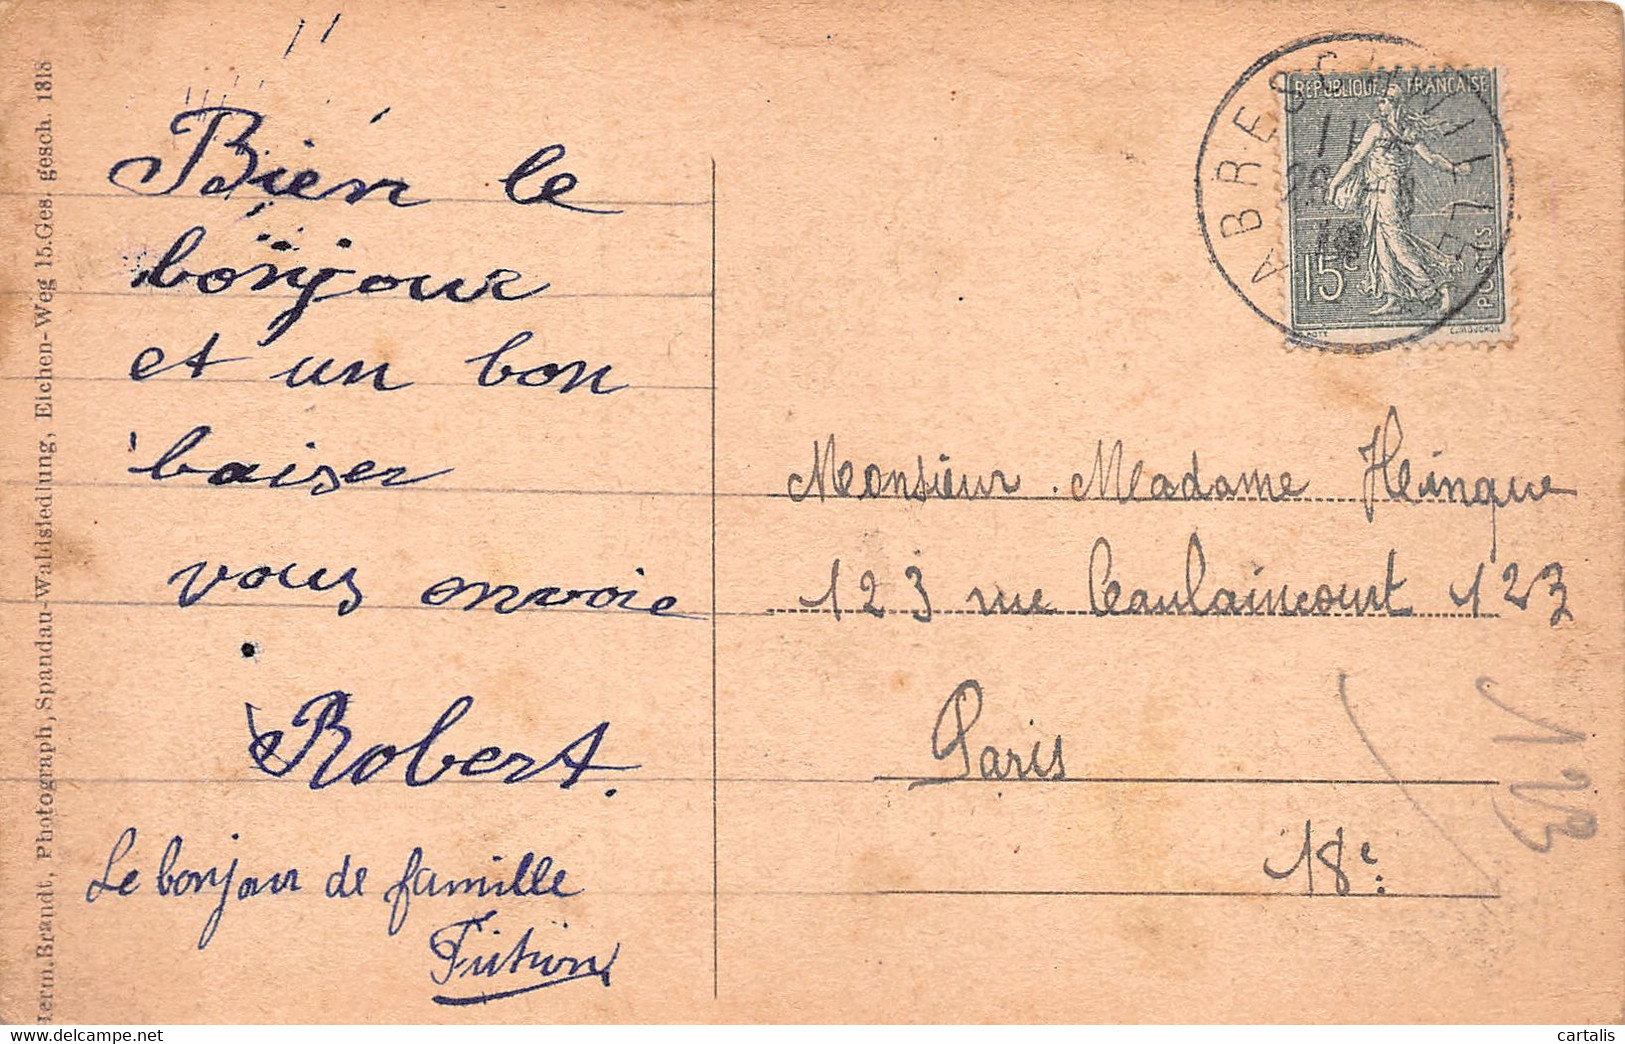 Hern. Brandt, Photograph, Spandau-Waldsiedlung, Eichen-Weg 15. Ges. gesch. 1318
Bien le
bonjour
et un bon
baiser
vous envoie
Robert.
Le bonjour de famille
REPUBLIQUE FRANÇAISE
15c
POSTES
Monsieur. Madame Heinque
123 rue Caulaincourt 123
Paris
18e
123
www.delcampe.net
cartalis